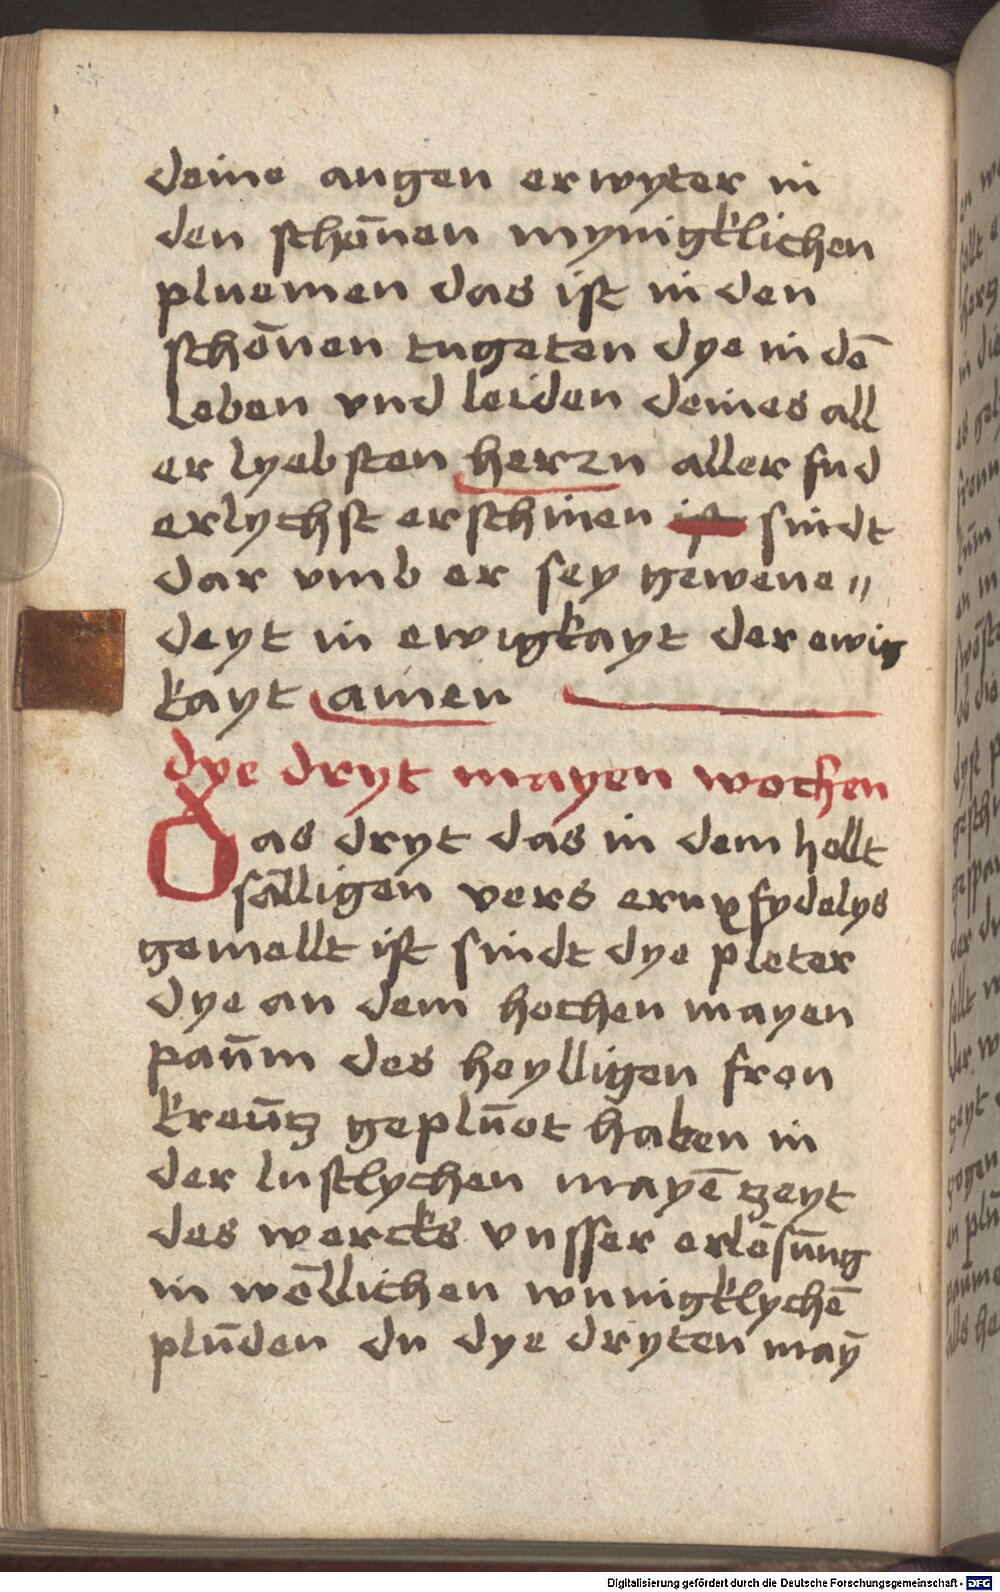 deine augen erwyter in
den schönen mynigklichen
pluemen das ist in den
schönen tugeten dye in dē
leben vnd leiden deines all
er lyebsten herzn aller sud
erlychst erschinen ist sindt
dar vmb er sey gewene〃
deyt in ewigkayt der ewig
kayt amen
dye dryt mayen wochen
Das dryt das in dem hollt
sälligen vers crux fydelys
gemellt ist sindt dye pleter
dye an dem hochen mayen
paūm des heylligen fron
kreūtz geplūet haben in
der lustlychen mayē tzeyt
des wercks vnsser erlösūng
in wöllichen wunigklychē
plūden du dye dryten maȳ
Digitalisierung gefördert durch die Deutsche Forschungsgemeinschaft - DFG